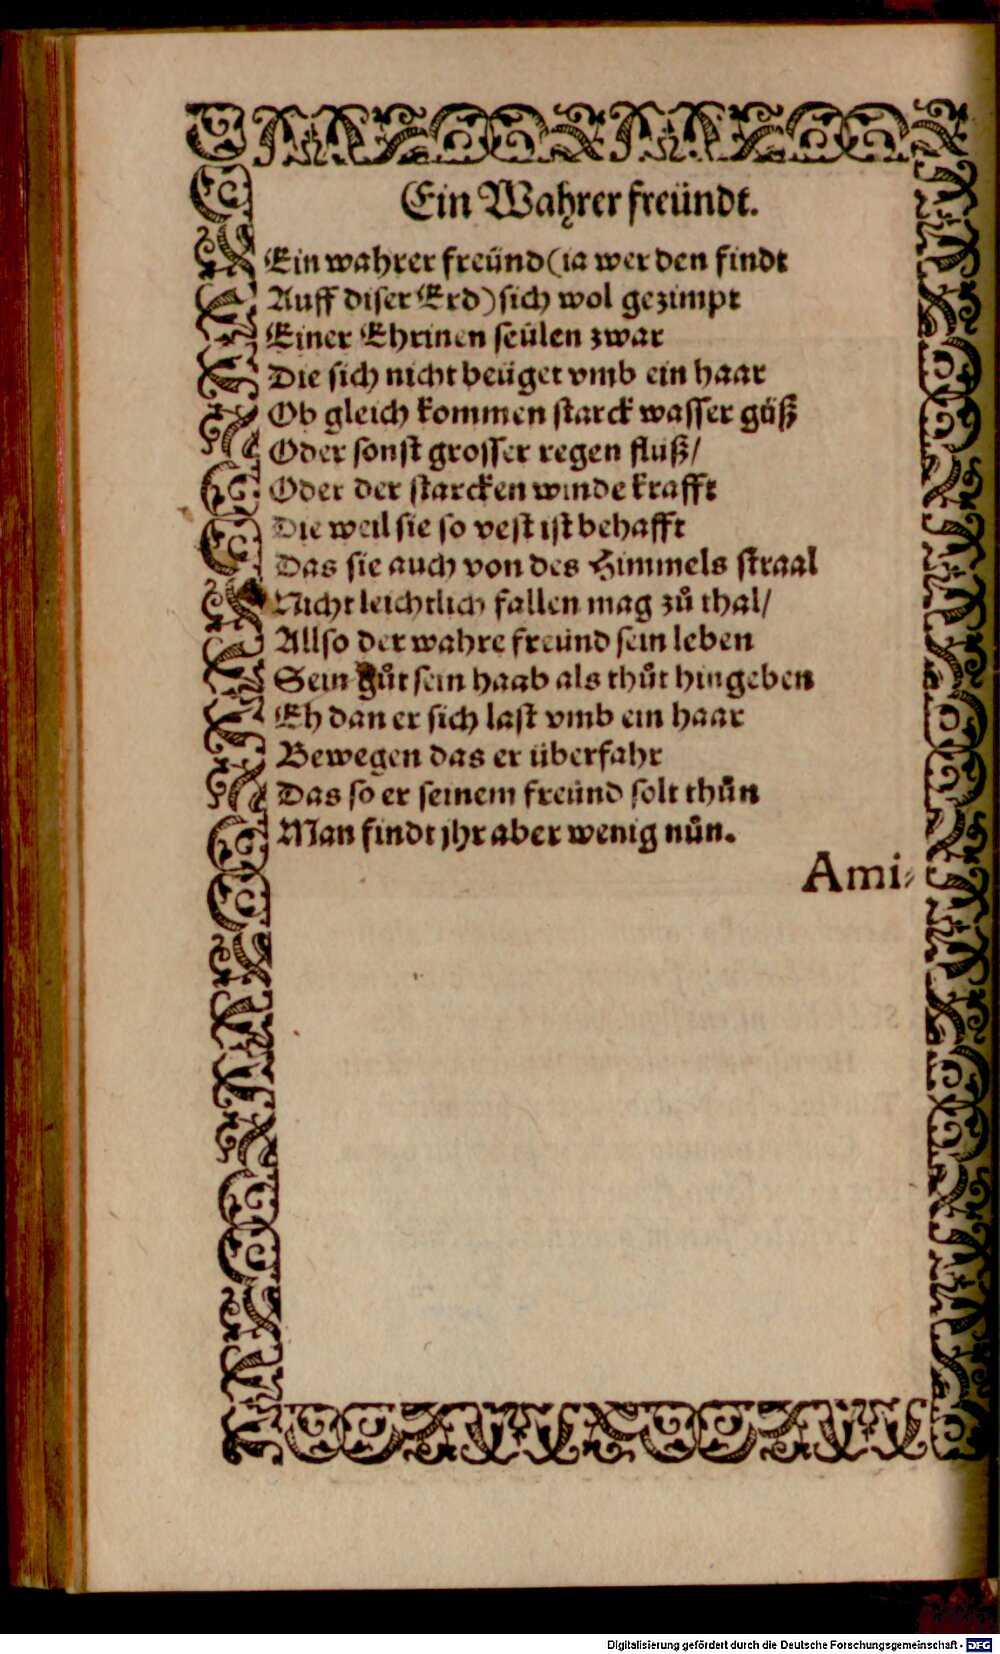 Ein Wahrer freündt.
Ein wahrer freünd (ia wer den findt
Auff diser Erd) sich wol gezimpt
Einer Ehrinen seülen zwar
Die sich nicht beüget vmb ein haar
Ob gleich kommen starck wasser güß
Oder sonst grosser regen fluß/
Oder der starcken winde krafft
Die weil sie so vest ist behafft
Das sie auch von des Himmels straal
Nicht leichtlich fallen mag zů thal/
Allso der wahre freünd sein leben
Sein gůt sein haab als thůt hingeben
Eh dan er sich last vmb ein haar
Bewegen das er überfahr
Das so er seinem freünd solt thůn
Man findt jhr aber wenig nůn.
Ami-
Digitalisierung gefördert durch die Deutsche Forschungsgemeinschaft - DFG